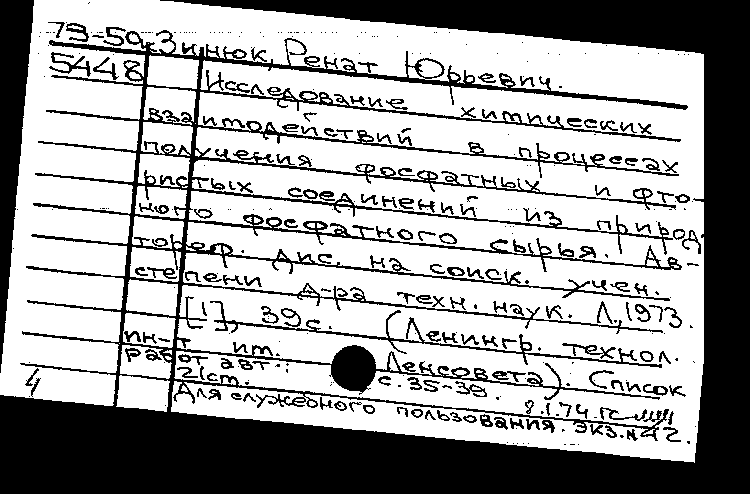 73-50 Зинюк, Ренат Юрьевич.
5448
Исследование химических
взаимодействий в процессах
получения фосфатных и фто-
ристых соединений из природ-
ного фосфатного сырья. Ав-
тореф. дис. на соиск. учен.
степени д-ра техн. наук. Л., 1973.
[1], 39 с. (Ленингр. технол.
ин-т им. Ленсовета). Список
работ авт.: с. 35-39.
21 ст. 8.1.74. гс
4 Для служебного пользования. Экз. №42.